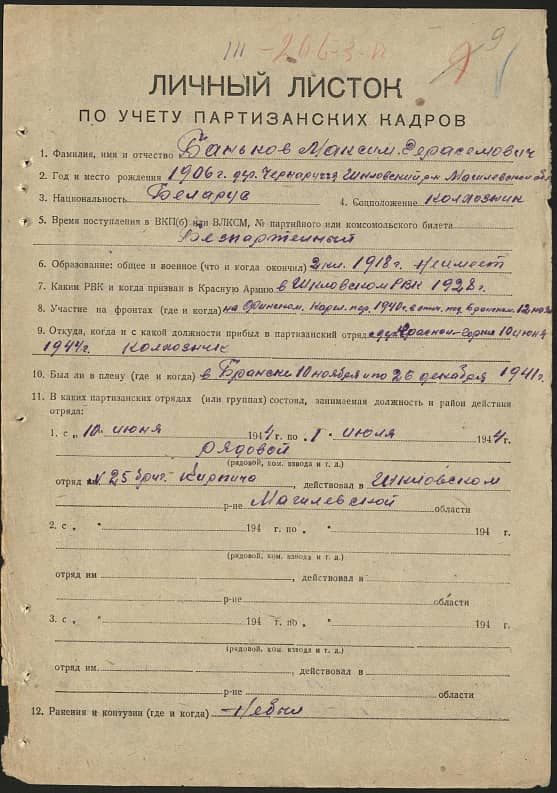 III - 206-3-П
9
ЛИЧНЫЙ ЛИСТОК
ПО УЧЕТУ ПАРТИЗАНСКИХ КАДРОВ
1. Фамилия, имя и отчество Баньков Максим. Герасемович
2. Год и место рождения 1906 г. дер. Чернаруссa Шкловский р-н Магилевской обл
3. Национальность Беларус 4. Соцположение колхозник
5. Время поступления в ВКП(б) или ВЛКСМ, № партийного или комсомольского билета
Беспартейный
6. Образование: общее и военное (что и когда окончил) 2 кл. 1918 г. Неимеет
7. Каким РВК и когда призван в Красную Армию в Шкловском РВК 1928 г.
8. Участие на фронтах (где и когда) на Финском. 1940 г.
9. Откуда, когда и с какой должности прибыл в партизанский отряд с дер. Красная-горка 10 июня
1944 г. Колхозник
10. Был ли в плену (где и когда) в Бранске 10 ноября и по 26 декабря 1941 г.
11. В каких партизанских отрядах (или группах) состоял, занимаемая должность и район действия
отряда:
1. с „ 10 июня 1944 г. по „ 1 июля 1944 г.
Рядовой
(рядовой, ком. взвода и т. д.)
отряд № 25 бриг. Кирпича, действовал в Шкловском
р-не Магилевской области
2. с „ " 194 г. по „ " 194 г.
(рядовой, ком. взвода и т. д.)
отряд им , действовал в
р-не области
3. с „ " 194 г. по „ " 194 г.
(рядовой, ком. взвода и т. д.)
отряд им. , действовал в
р-не области
12. Ранения и контузии (где и когда) Небыл